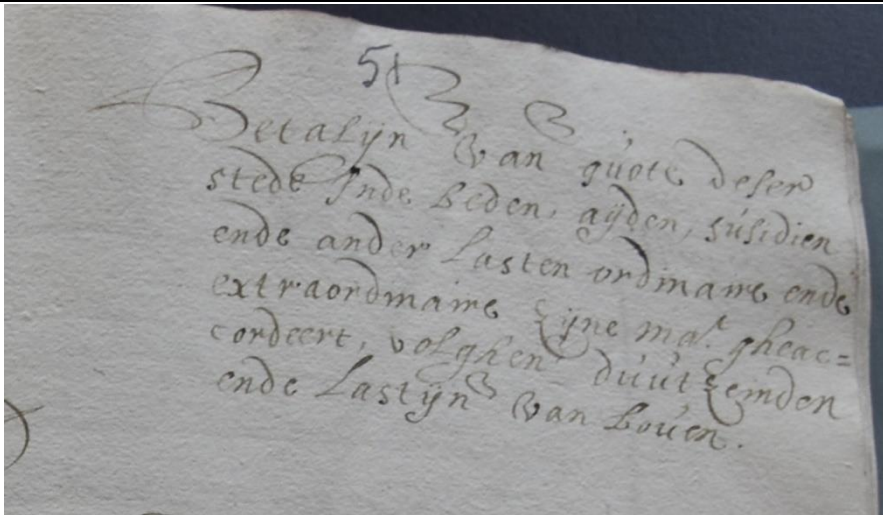 Betalijn van quote deser
stede Inde beden, aijden, susidien
ende ander lasten ordinaire ende
extraordinaire zijne mat. gheac=
cordeert, volghen duutzeinden
ende lastijn van boven.